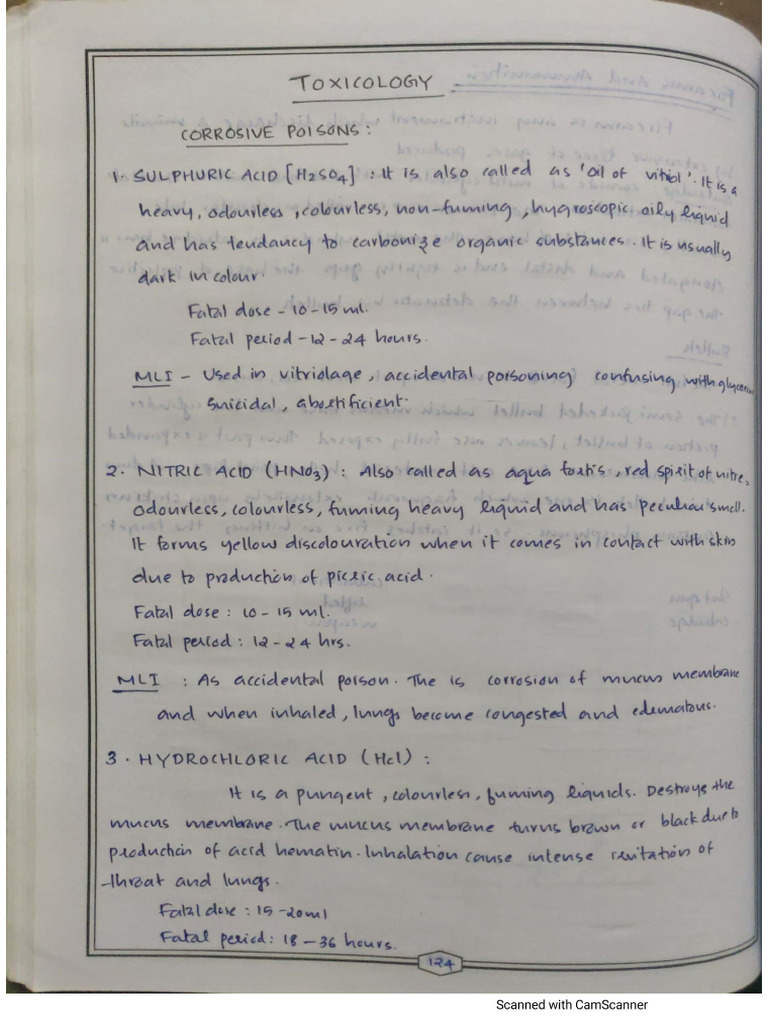 TOXICOLOGY
CORROSIVE POISONS :
1. SULPHURIC ACID [H2SO4] : It is also called as 'oil of vitriol'. It is a
heavy, odourless, colourless, non-fuming, hygroscopic, oily liquid
and has tendancy to carbonize organic substances. It is usually
dark in colour.
Fatal dose - 10-15 ml.
Fatal period - 12-24 hours.
MLI - Used in vitriolage, accidental poisoning confusing with glycerin
suicidal, abortificient.
2. NITRIC ACID (HNO3) : Also called as aqua fortis, red spirit of nitre,
odourless, colourless, fuming heavy liquid and has peculiar smell.
It forms yellow discolouration when it comes in contact with skin
due to production of picric acid.
Fatal dose : 10-15 ml.
Fatal period : 12-24 hrs.
MLI : As accidental poison. The is corrosion of mucus membrane
and when inhaled, lungs become congested and edematous.
3. HYDROCHLORIC ACID (Hcl) :
It is a pungent, colourless, fuming liquids. Destroys the
mucus membrane. The mucus membrane turns brown or black due to
production of acid hematin. Inhalation cause intense irritation of
throat and lungs.
Fatal dose : 15-20ml
Fatal period : 18-36 hours.
124
Scanned with CamScanner